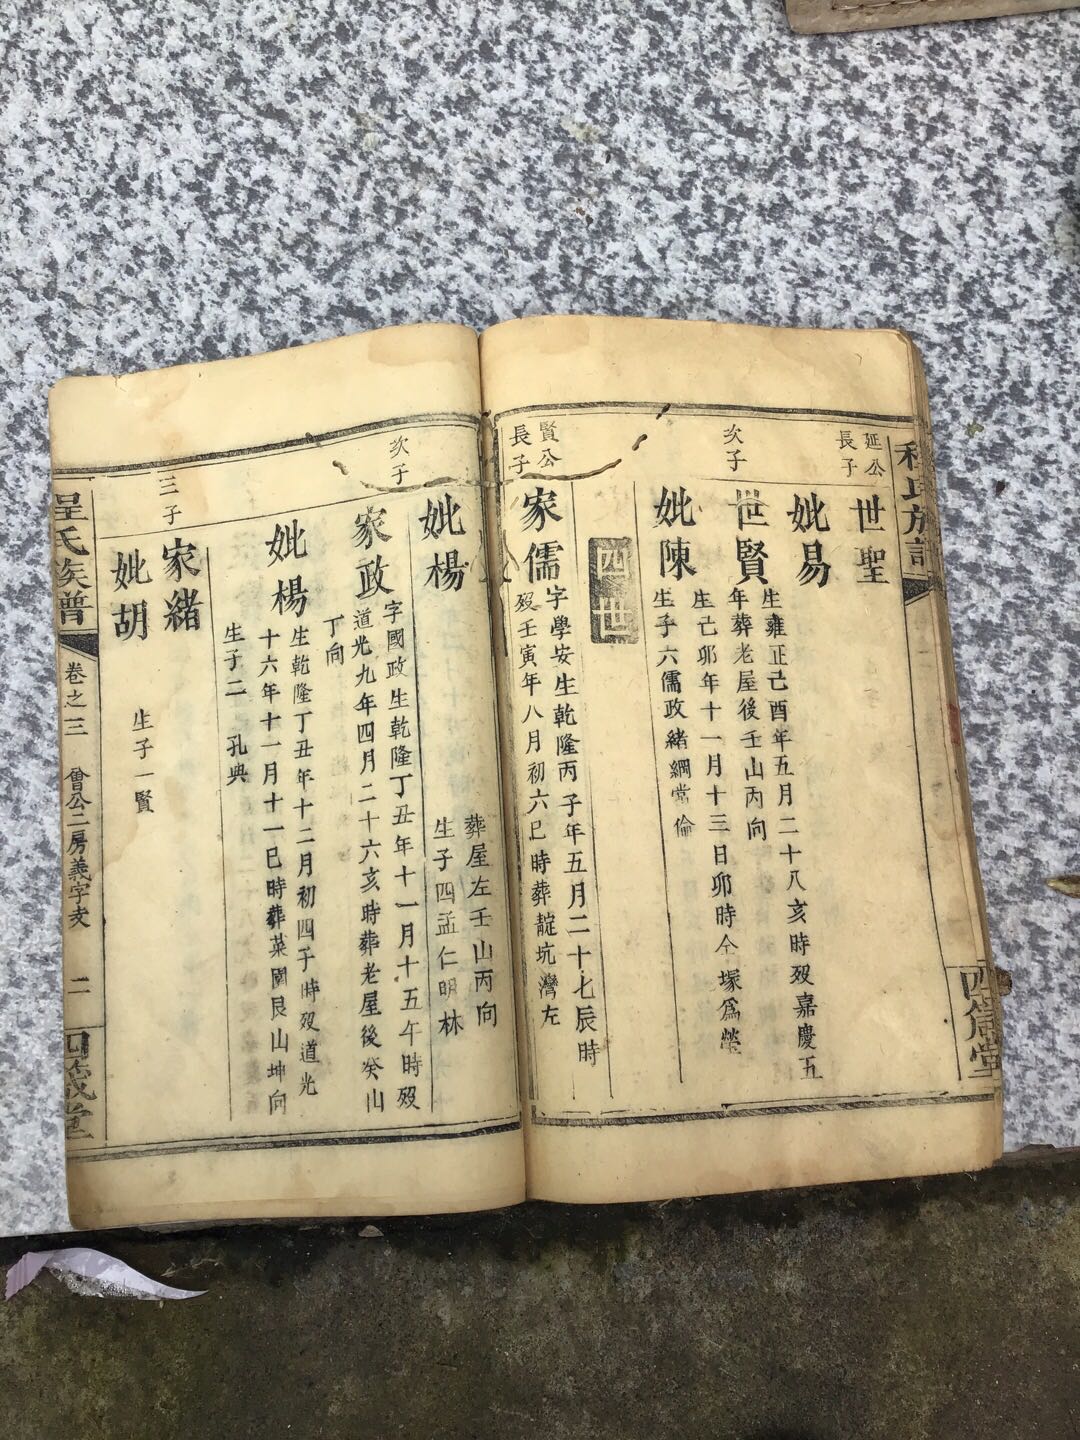 程氏族譜
四箴堂
延公
長子
世聖
妣易
次子
世賢
生雍正己酉年五月二十八亥時歿嘉慶五
年葬老屋後壬山丙向
妣陳
生己卯年十一月十三日卯時仝塚爲塋
生子六儒政緒綱常倫
四世
賢公
長子
家儒
字學安生乾隆丙子年五月二十七辰時
歿壬寅年八月初六巳時葬靛坑灣左
妣楊
葬屋左壬山丙向
生子四孟仁明林
次子
家政
字國政生乾隆丁丑年十一月十五午時歿
道光九年四月二十六亥時葬老屋後癸山
丁向
妣楊
生乾隆丁丑年十二月初四子時歿道光
十六年十一月十一巳時葬菜園艮山坤向
生子二孔典
三子
家緒
妣胡
生子一賢
程氏族譜
卷之三
曾公二房義字支
二
四箴堂